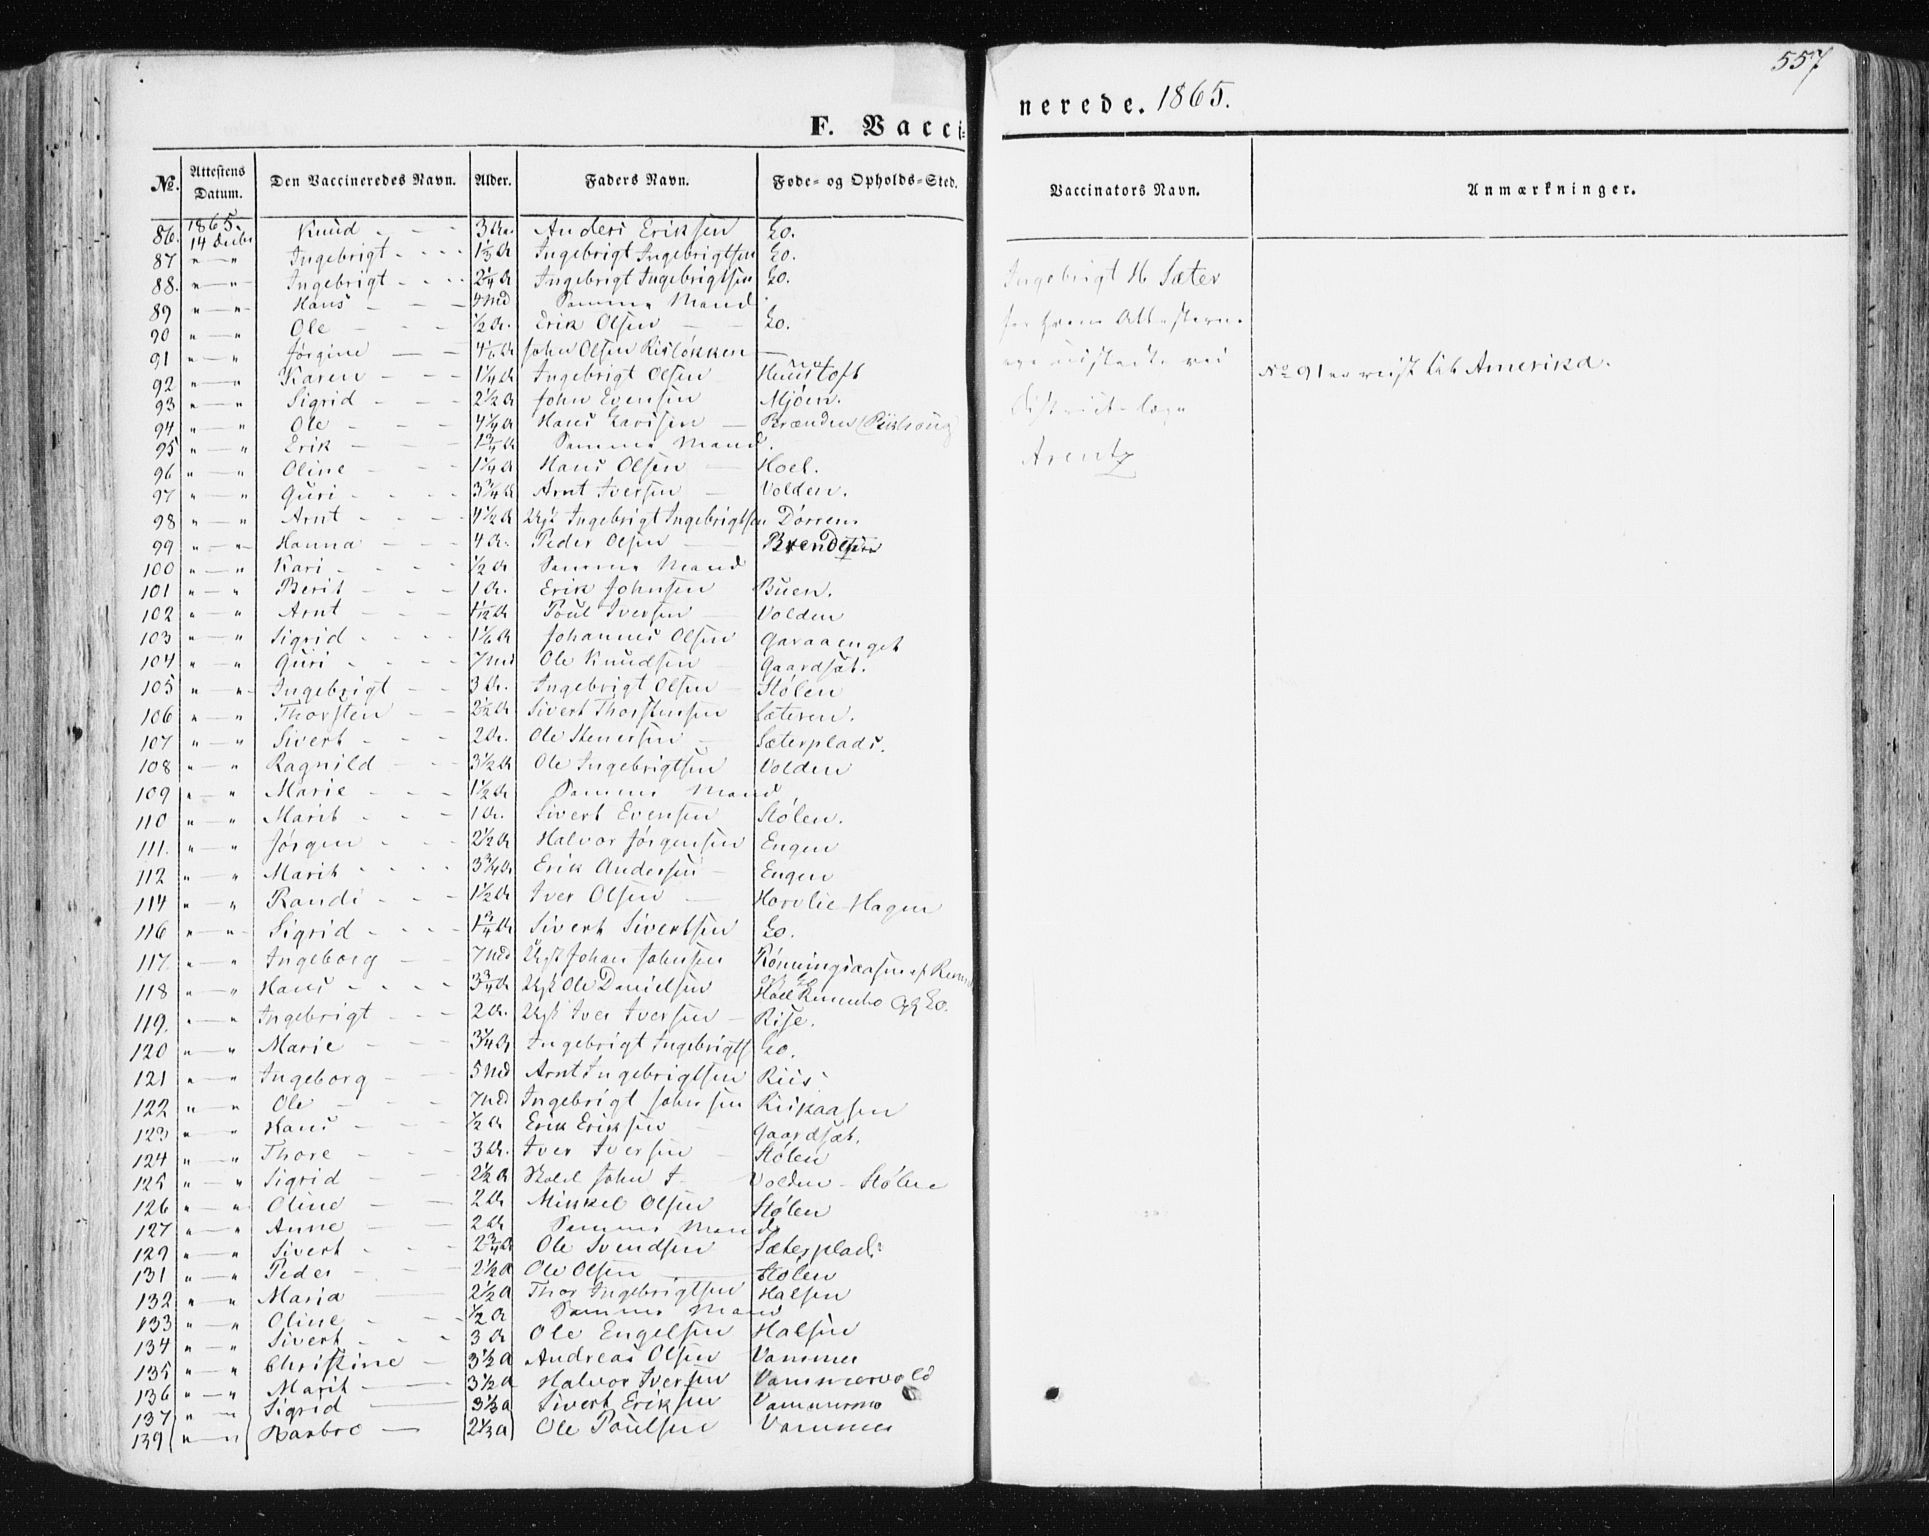 557
F. Vacci-
nerede. 1865.
No. Attestens Datum. Den Vaccineredes Navn. Alder. Faders Navn. Føde- og Opholds-Sted. Vaccinators Navn. Anmærkninger.
86. 1865. 14 Decbr Knud 3 Aar. Anders Eriksen Lo.
87 " — " Ingebrigt 1 1/3 A Ingebrigt Ingebrigtsen Lo.
88. " — " Ingebrigt 2 1/4 A Ingebrigt Ingebrigtsen Lo.
89 " — " Hans 4 Md Samme Mand
90 " — " Ole 1/2 A. Erik Olsen Lo.
91 " — " Jørgine John Olsen Risløkken
92 " — " Karen 1 1/4 A Ingebrigt Olsen Huustoft
93 " — " Sigrid 2 1/2 A John Evensen Mjøen.
94 " — " Ole 4 1/4 A Hans Larssen Brænden
95 " — " Erik Samme Mand.
96 " — " Oline 1 1/4 A Hans Olsen Hoel.
97 " — " Guri 3 3/4 A Arnt Iversen Volden.
98 " — " Arnt 4 1/2 A Ugt Ingebrigt Ingebrigtsen Dørrem
99 " — " Hanna 4 A. Peder Olsen
100 " — " Kari 1/2 A Samme Mand
101 " — " Berit 1 A. Erik Johnsen Buen.
102 " — " Arnt Poul Iversen Volden
103 " — " Sigrid 1 1/6 A Johannes Olsen Gavaaenget
104 " — " Guri 7 Md Ole Knudsen Gaardsæt.
105 " — " Ingebrigt 3 A. Ingebrigt Olsen Stølen
106 " — " Thorsten 2 1/2 A Sivert Thorstensen Sæteren.
107 " — " Sivert 2 A. Ole Stenersen Sæterplads.
108 " — " Ragnild 3 1/2 A Ole Ingebrigtsen Volden
109 " — " Marie 1 1/2 A Samme Mand
110 " — " Marit 1 A. Sivert Evensen Stølen.
111. " — " Jørgen 2 1/2 A Halvor Jørgensen Engen
112 " — " Marit 3 3/4 A Erik Andersen Engen
114 " — " Randi 1 1/2 A Iver Olsen Horvlie Hagen
116 " — " Sigrid 1 3/4 A Sivert Sivertsen Lo.
117. " — " Ingeborg 7 Md Ugt Johan Johnsen
118 " — " Hans 3 3/4 A Ugt Ole Danielsen
119. " — " Ingebrigt 2 A. Ugt Iver Iversen Rise.
120 " — " Marie 3 1/4 A Ingebrigt Ingebrigts Lo.
121 " — " Ingeborg 5 Md Arnt Ingebrigtsen Riis
122 " — " Ole 7 Md Ingebrigt Johnsen Riskaasen
123 " — " Hans 1/2 A Erik Eriksen Gaardsæt.
124 " — " Thore 3 A. Iver Iversen Stølen
125 " — " Sigrid 2 1/2 A John I. Volden - Stølen
126 " — " Oline 2 A Mikkel Olsen Stølen
127 " — " Anne 2 A Samme Mand
129 " — " Sivert 2 3/4 A Ole Svendsen Sæterplads
131 " — " Peder 2 1/2 A Ole Olsen Stølen
132 " — " Maria 2 1/2 A Thor Ingebrigtsen Halsen
133 " — " Oline 1/2 A Samme Mand
134 " — " Sivert 3 A Ole Engelsen Halsen
135 " — " Christine 3 1/2 A Andreas Olsen Vammer
136 " — " Marit 3 1/2 A Halvor Iversen Vammervold
137 " — " Sigrid 3 1/3 A Sivert Eriksen Vammermo
139 " — " Barbro 2 1/3 A Ole Poulsen Vammer
Ingebrigt H. Sæter
for hvem Attesterne
ere udstedte ved
Districtslæge
Arentz
No 91 er reist til Amerika.